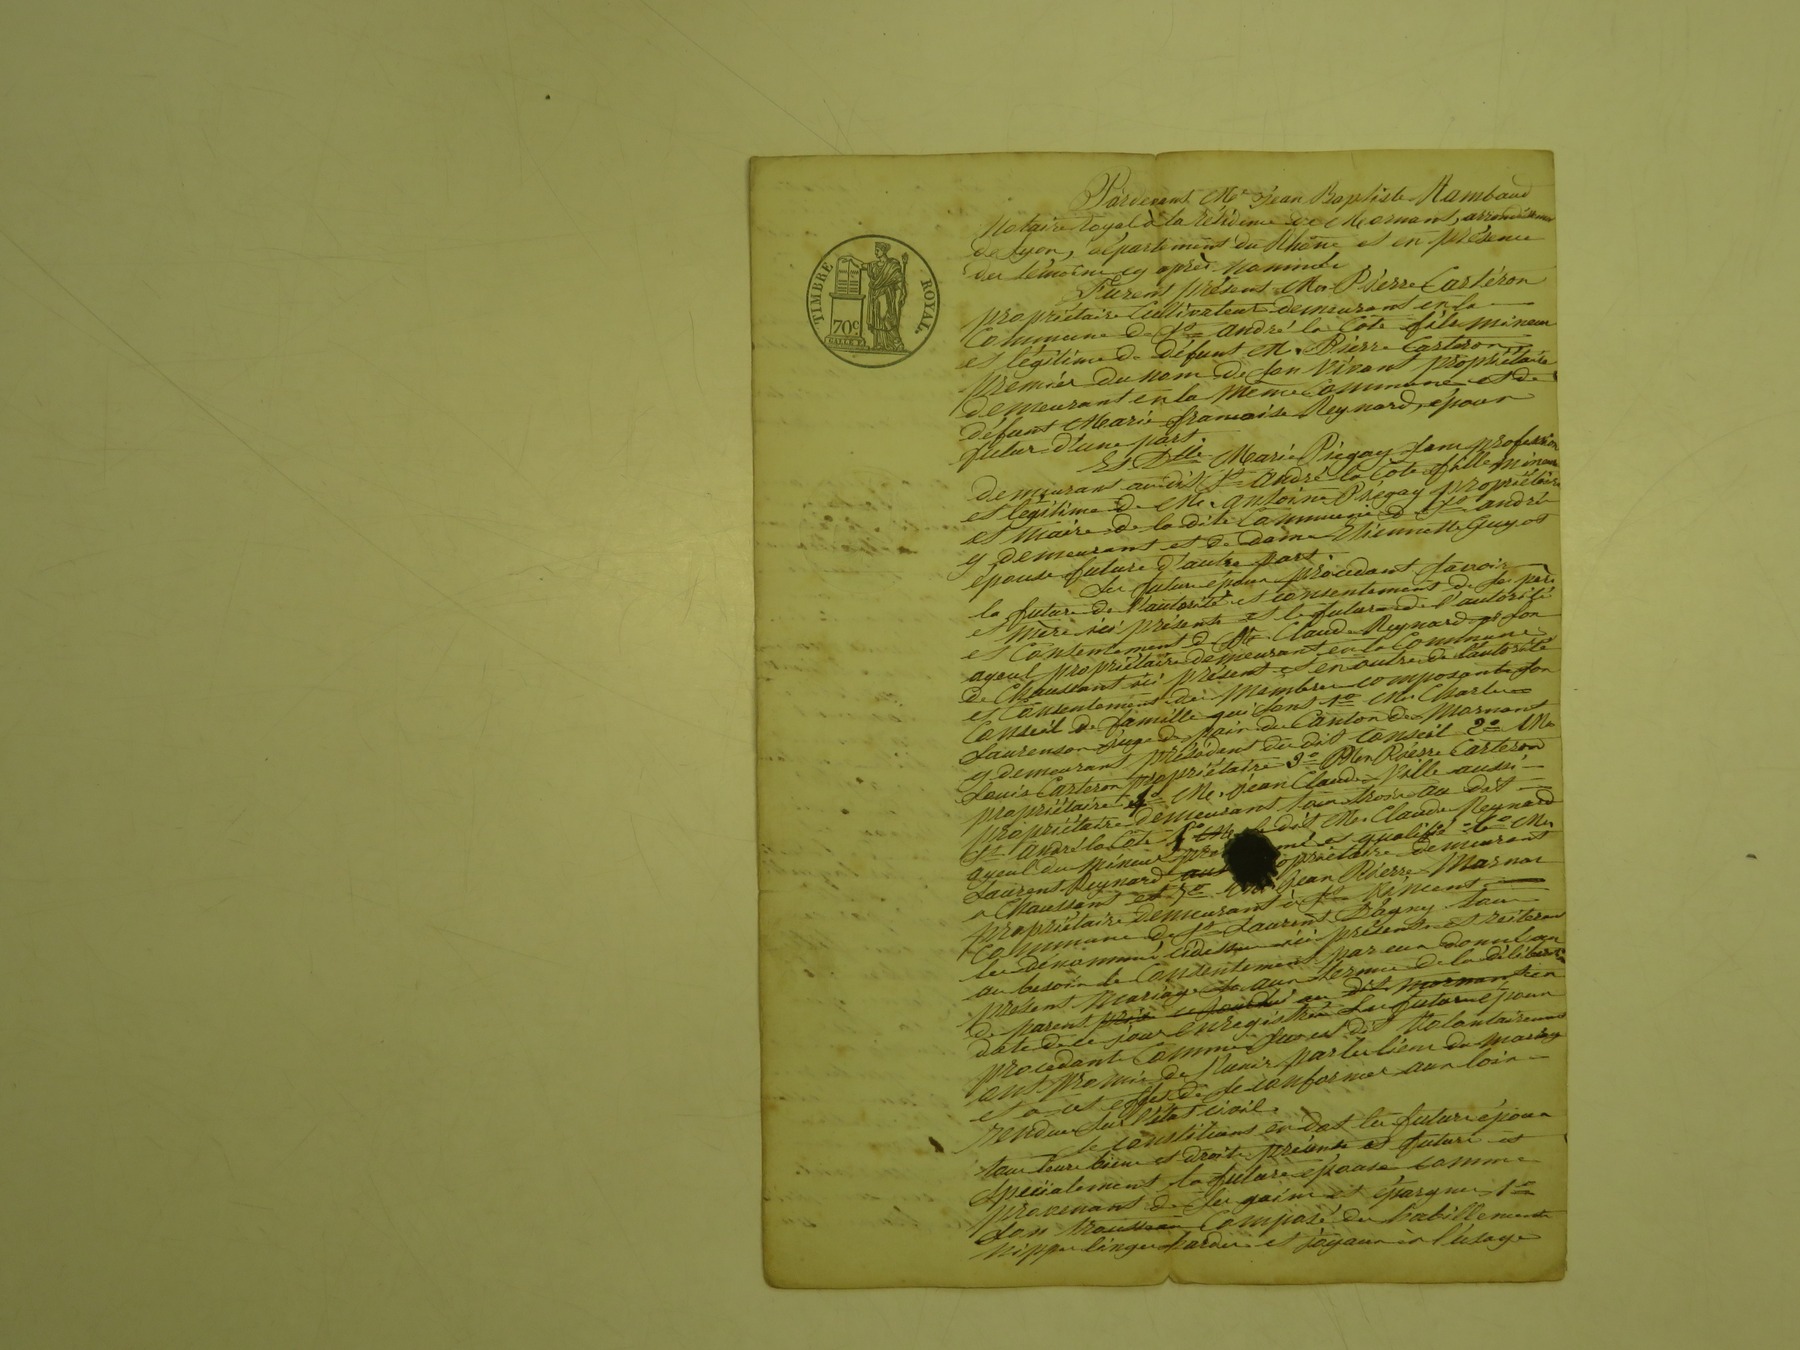 TIMBRE ROYAL.
70c.
Pardevant Me Jean Baptiste Rambaud
Notaire royal à la résidence de Mornant, arrondissement
de Lyon, département du Rhône et en présence
des témoins cy après nommés
Furent présens Mr. Pierre Cartéron
propriétaire Cultivateur demeurant en la
Commune de St. André la Côte fils mineur
et légitime de défunt M. Pierre Carteron
premier du nom de son vivant propriétaire
demeurant en la même Commune et de
défunt Marie françoise Reynard, époux
futur d'une part
Et Dlle Marie Piégay sans profession
demeurant au dit St. André la Côte fille mineure
et légitime de Mr. Antoine Piégay propriétaire
et Maire de la dite Commune de St. andré
y demeurant et de dame Etiennette Guyot
épouse future d'autre part.
Les futurs époux procédant savoir
la future de l'autorité et consentement de ses père
et mère ici présents et le futur de l'autorité
et Consentement de Mr. Claude Reynard son
ayeul propriétaire demeurant en la Commune
de Chaussant ici présent et en outre de l'autorité
et Consentement des Membres composants son
Conseil de famille qui sont 1o Mr. Charles
Laurenson Juge de paix du Canton de Mornant
y demeurant président du dit Conseil 2o Mr
Louis Carteron propriétaire 3o Mr Pierre Carteron
propriétaire 4o Mr. Jean Claude Ville aussi
propriétaire demeurant tous trois au dit
St. André la Côte 5o le dit Mr. Claude Reynard
ayeul du mineur et qualifié 6o Mr.
Laurent Reynard propriétaire demeurant
a Chaussant et 7o Mr. Jean Pierre
propriétaire demeurant à St. Vincent
Commune de St. Laurent D'agny tous
les dénommés cidessus ici présents et réitérant
au besoin le Consentement par eux donné au
présent Mariage aux termes de la délibération
de parents en
date de ce jour enregistrée Les futurs époux
procédant Comme sus est dit Volontairement
ont promis de s'unir par les liens du mariage
et a cet effet de se conformer aux loix
rendues sur l'état civil.
Se constituent en dot les futurs époux
tous leurs biens et droits présents et futurs et
spécialement la future épouse comme
provenant de ses gains et épargnes 1o
son trousseau Composé des habillements
nippes linges hardes et joyaux à l'usage